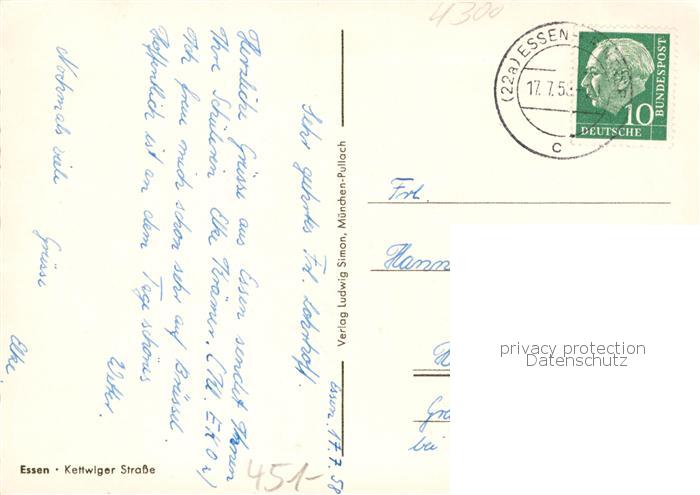 4300
(22a) ESSEN
17. 7. 58
c
10
DEUTSCHE
BUNDESPOST
Essen, 17.7.58
Sehr geehrtes Frl. Lohrhoff.
Herzliche Grüsse aus Essen sendet Ihnen
Ihre Schülerin Elke Krämer.
Ich freue mich schon sehr auf Brüssel.
Hoffentlich ist an dem Tage schönes
Wetter.
Nochmals viele Grüsse
Elke.
Verlag Ludwig Simon, München-Pullach
Frl.
Hann
bei
privacy protection
Datenschutz
Essen · Kettwiger Straße
451-